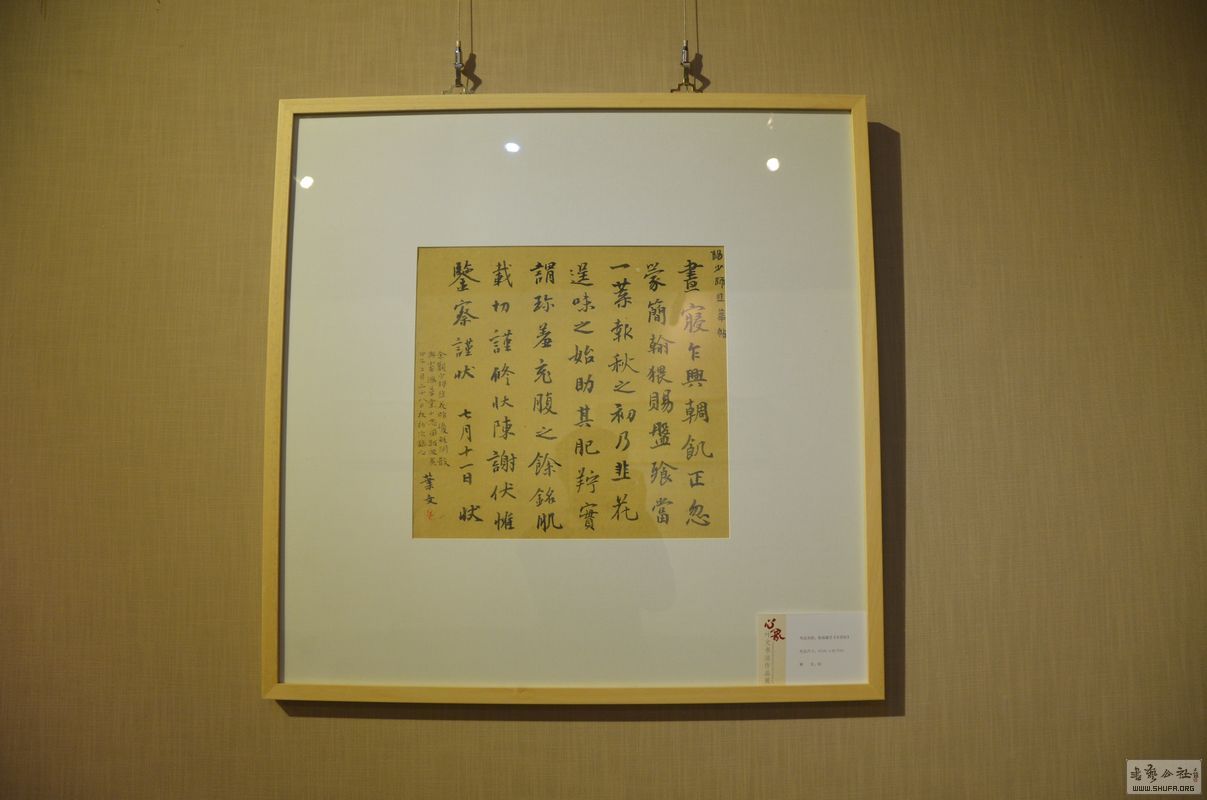 楊少師韭華帖
晝寢乍興輖飢正忽
蒙簡翰猥賜盤飧當
一葉報秋之初乃韭花
逞味之始助其肥羜實
謂珍羞充腹之餘銘肌
載切謹修狀陳謝伏惟
鑒察謹狀 七月十一日 狀
葉文
心象
叶文书法作品展
书艺公社
WWW.SHUFA.ORG